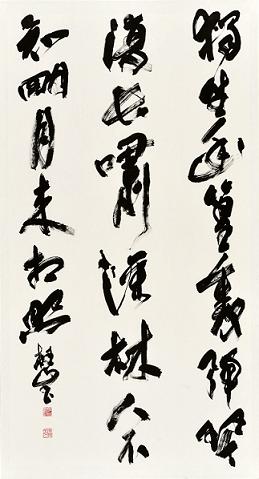 獨坐幽篁裏彈琴
復長嘯深林人不
知明月来相照